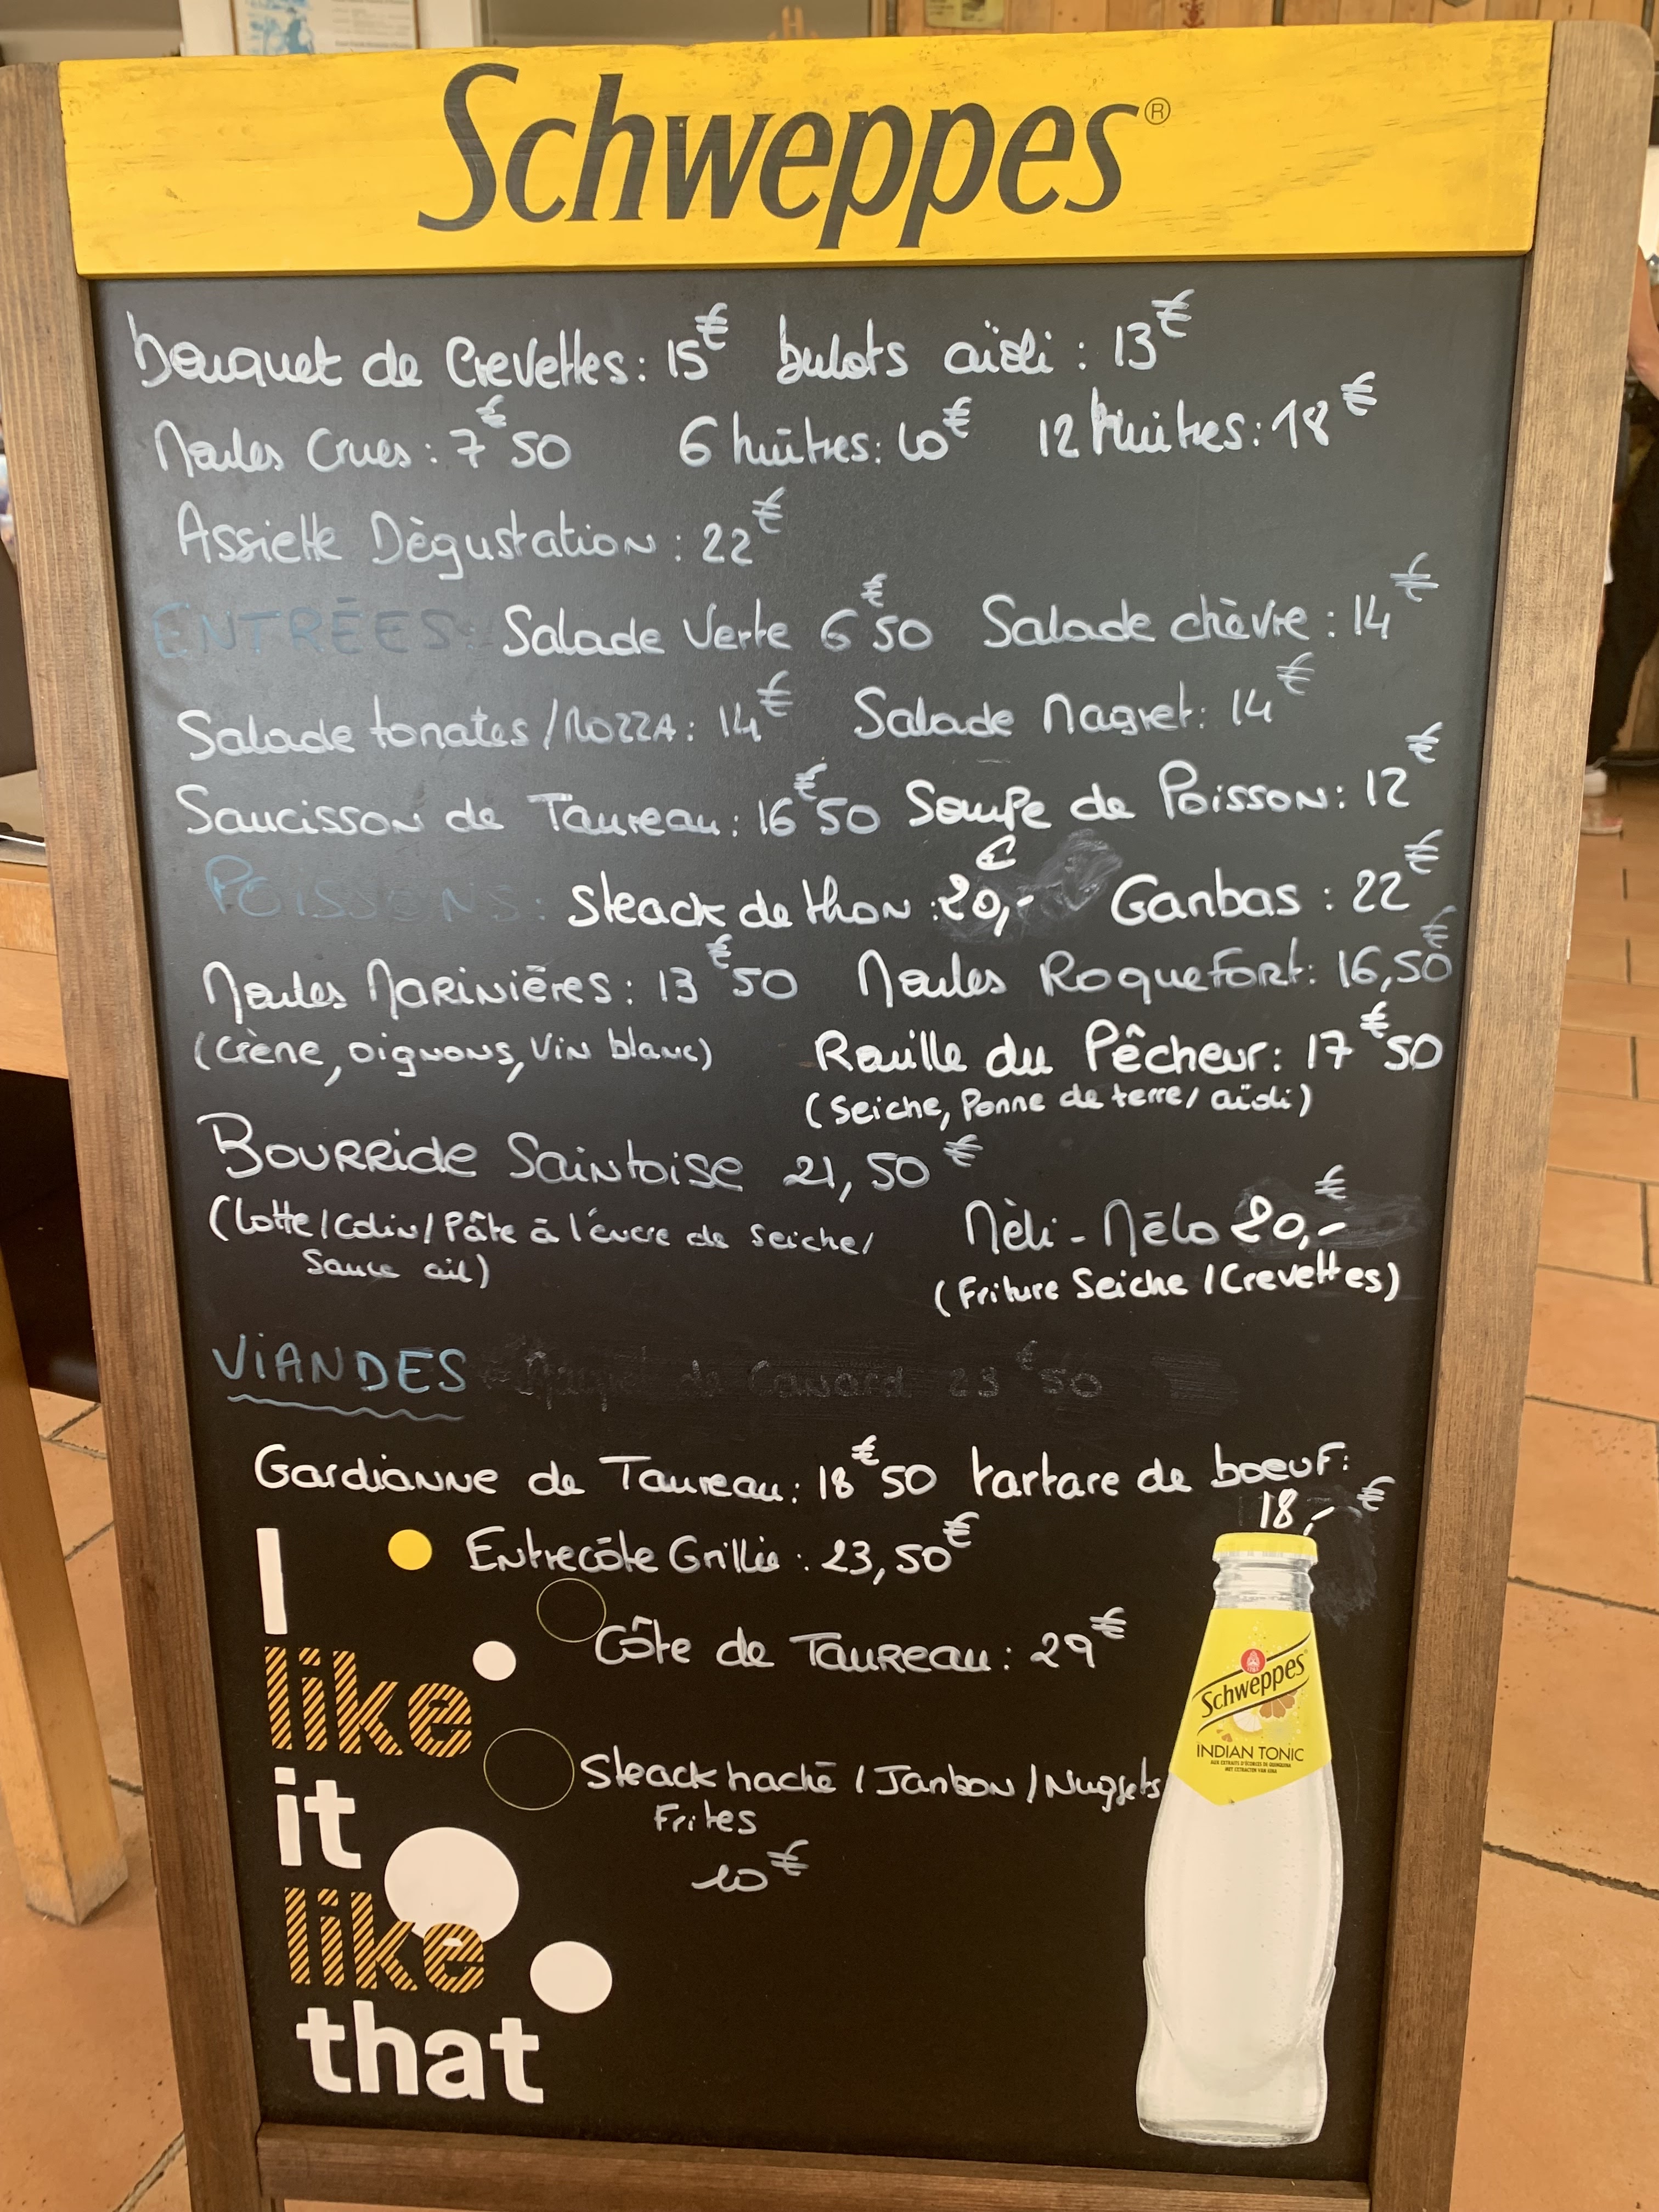 Schweppes®
bouquet de Crevettes: 15€ bulots aïoli : 13€
Moules Crues : 7€50 6 huîtres: 10€ 12 huitres: 18€
Assiette Dègustation : 22€
ENTRÉES: Salade Verte 6€50 Salade chèvre : 14€
Salade tomates / MOZZA: 14€ Salade Magret: 14€
Saucisson de Taureau: 16€50 Soupe de Poisson: 12€
POISSONS: Steack de thon : 20,-€ Ganbas : 22€
Moules MARiNières: 13€50 Moules Roquefort: 16,50€
(Crème, oignons, Vin blanc) Rouille du Pêcheur: 17€50
(Seiche, Pomme de terre/ aïoli)
Bourride Saintoise 21,50€
(Lotte/Colin/Pâte à l'éncre de Seiche/
Sauce ail)
Mèli-Mélo 20,-€
(Friture Seiche / Crevettes)
ViANDES Magret de Canard 23€50
Gardianne de Taureau: 18€50 tartare de boeuf:
18,-€
Entrecôte Grillée : 23,50€
Côte de Taureau : 29€
Steack haché / Jambon / Nuggets
Frites
10€
I
like
it
like
that
Schweppes
INDIAN TONIC